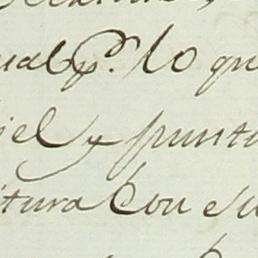 ual y p.ª lo qu
iel y puntu
itura Con su